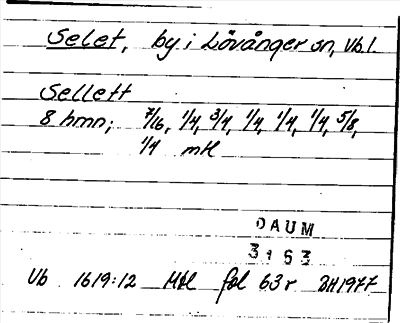 Selet, by i Lövånger sn, Vb.l.
Sellett
8 hmn; 7/16, 1/4, 3/4, 1/4, 1/4, 1/4, 5/8,
1/4 mtl
DAUM
3163
Vb 1619:12 Mtl fol 63r BH1977